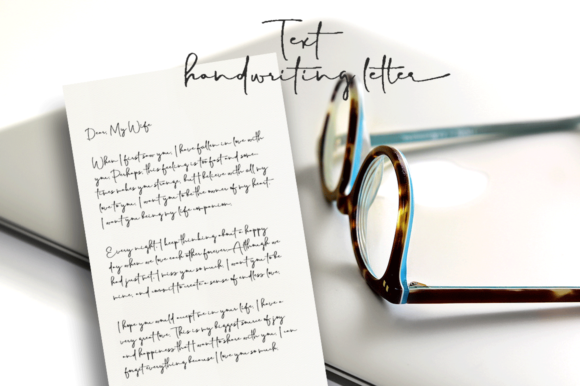 Text
handwriting letter
Dear My Wife
When I first saw you, I have fallen in love with
you. Perhaps this feeling is too fast and some
times makes you strange, but I believe with all my
love to you. I want you to be the owner of my heart.
I want you being my life companion.
Every night I keep thinking about a happy
day when we love each other forever. Although we
had just met I miss you so much. I want you to be
mine, and commit to create a sense of endless love.
I hope you would accept me in your life, I have a
very great love. This is my biggest source of joy
and happiness that I want to share with you. I can
forget everything because I love you so much